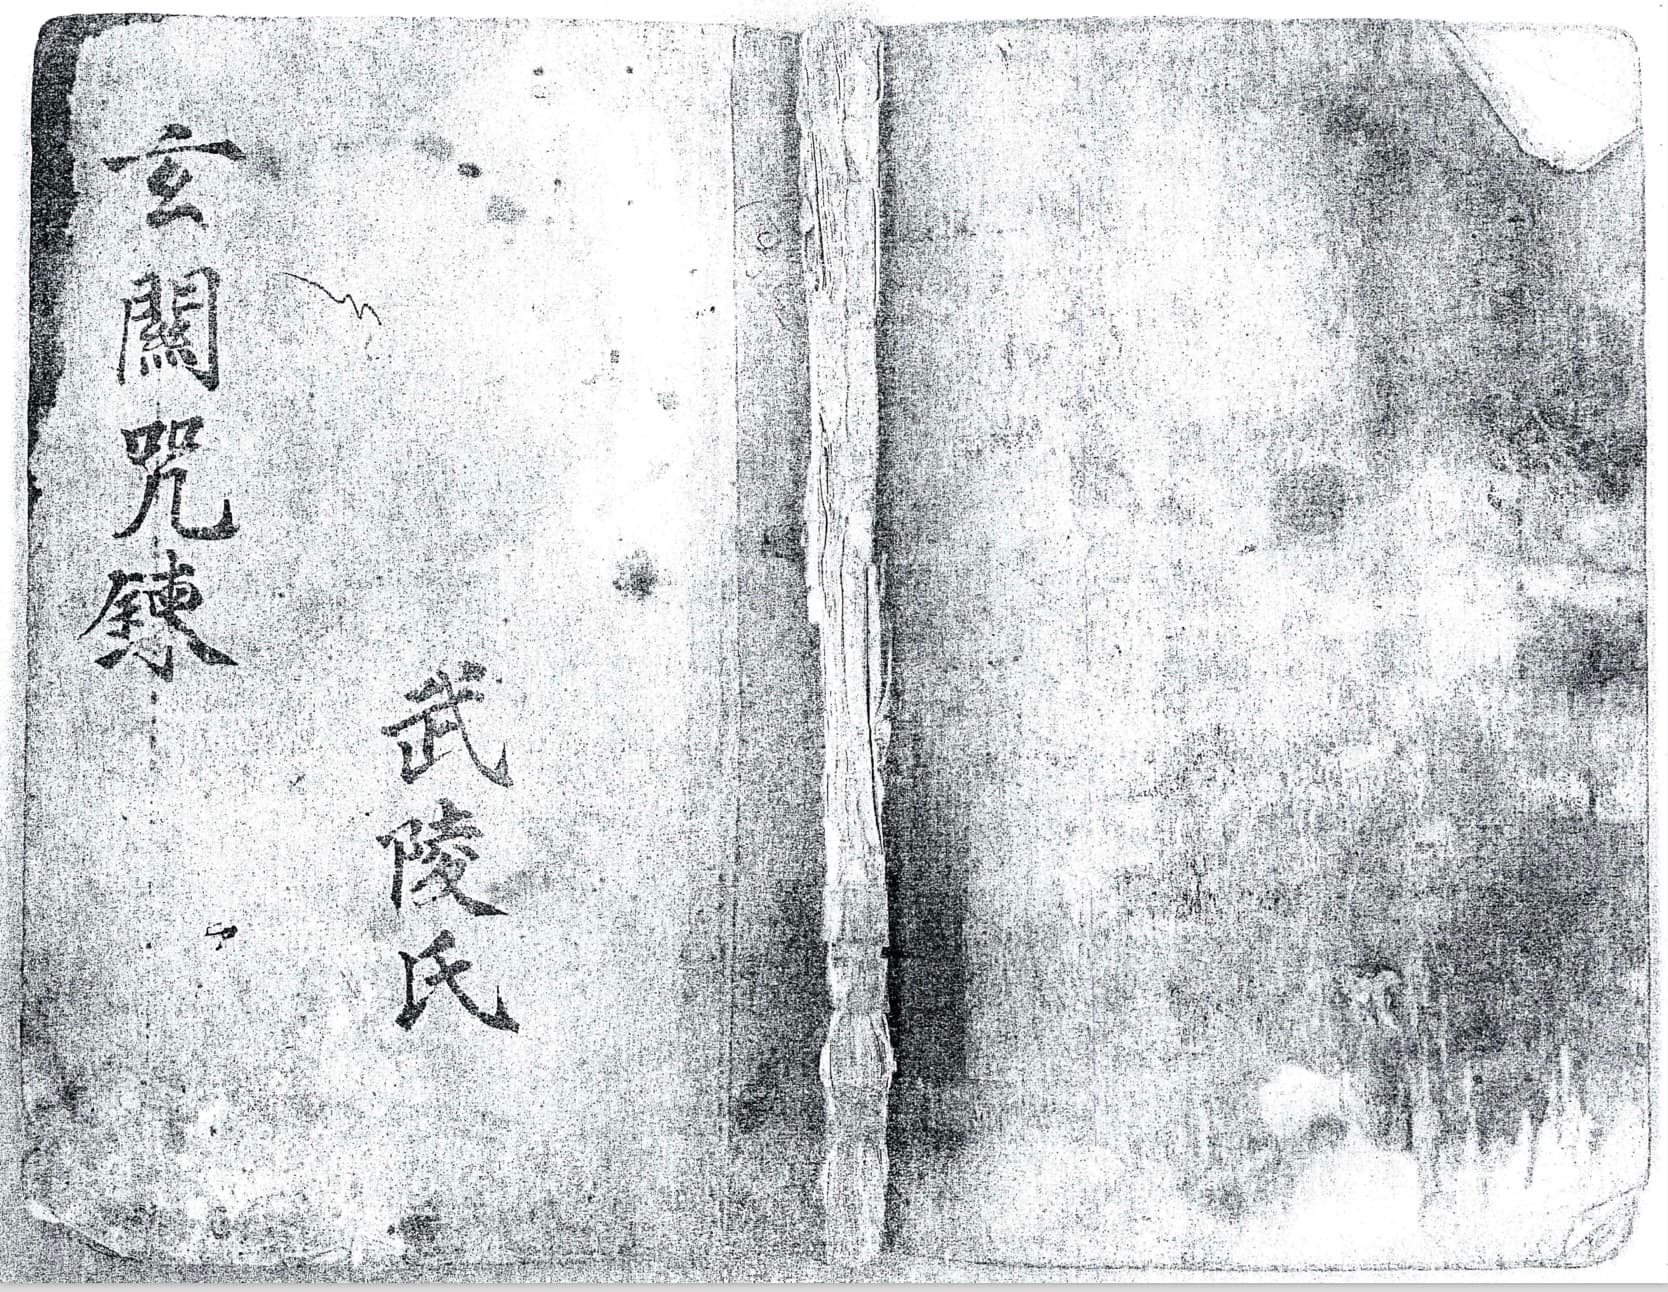 玄關咒鍊
武陵氏